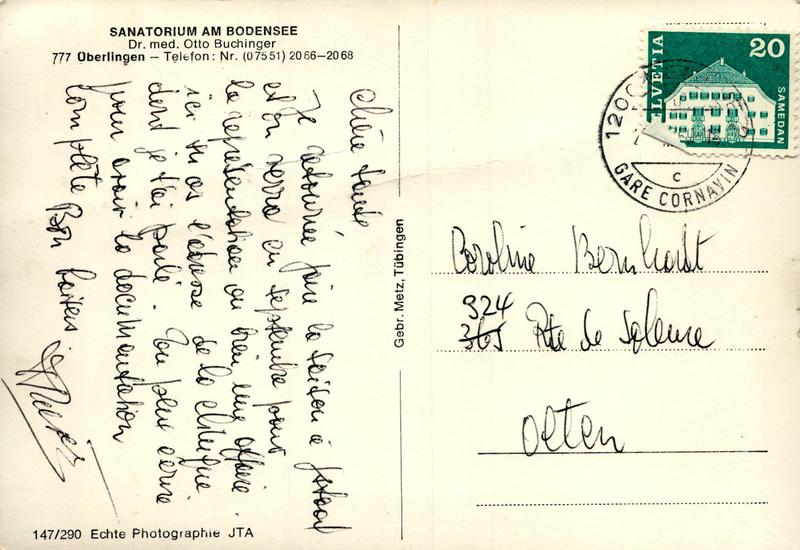 SANATORIUM AM BODENSEE
Dr. med. Otto Buchinger
777 Überlingen – Telefon: Nr. (07551) 2066–2068
Chère
Je retournée faire la saison à
on verra en septembre pour
la représentation ou bien une affaire.
ici tu as l'adresse de la clinique
dont je t'ai parlé. Tu peux écrire
pour avoir la documentation
complète Bon
147/290 Echte Photographie JTA
Gebr. Metz, Tübingen
HELVETIA
20
SAMEDAN
1200
GARE CORNAVIN
C
Caroline Bernhardt
324
365 Rte de Soleure
Olten